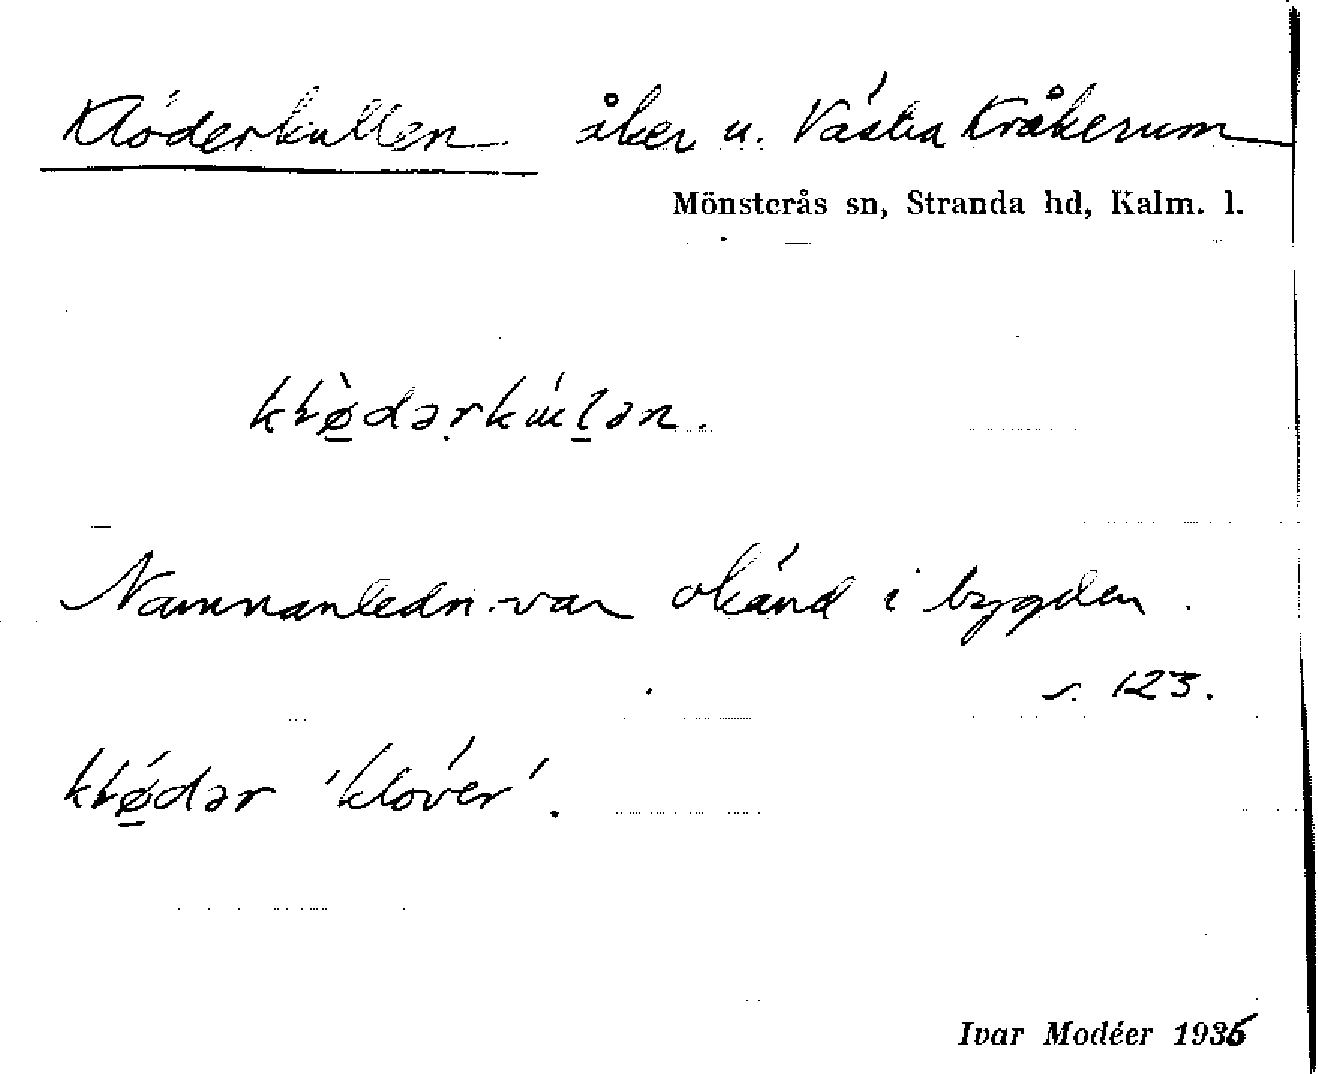 Klöderkullen åker u. Västra Kråkerum
Mönsterås sn, Stranda hd, Kalm. l.
kłø̀dərkúlən.
Namnanledn. var okänd i bygden.
s. 123.
kłǿdər 'klöver'.
Ivar Modéer 1935